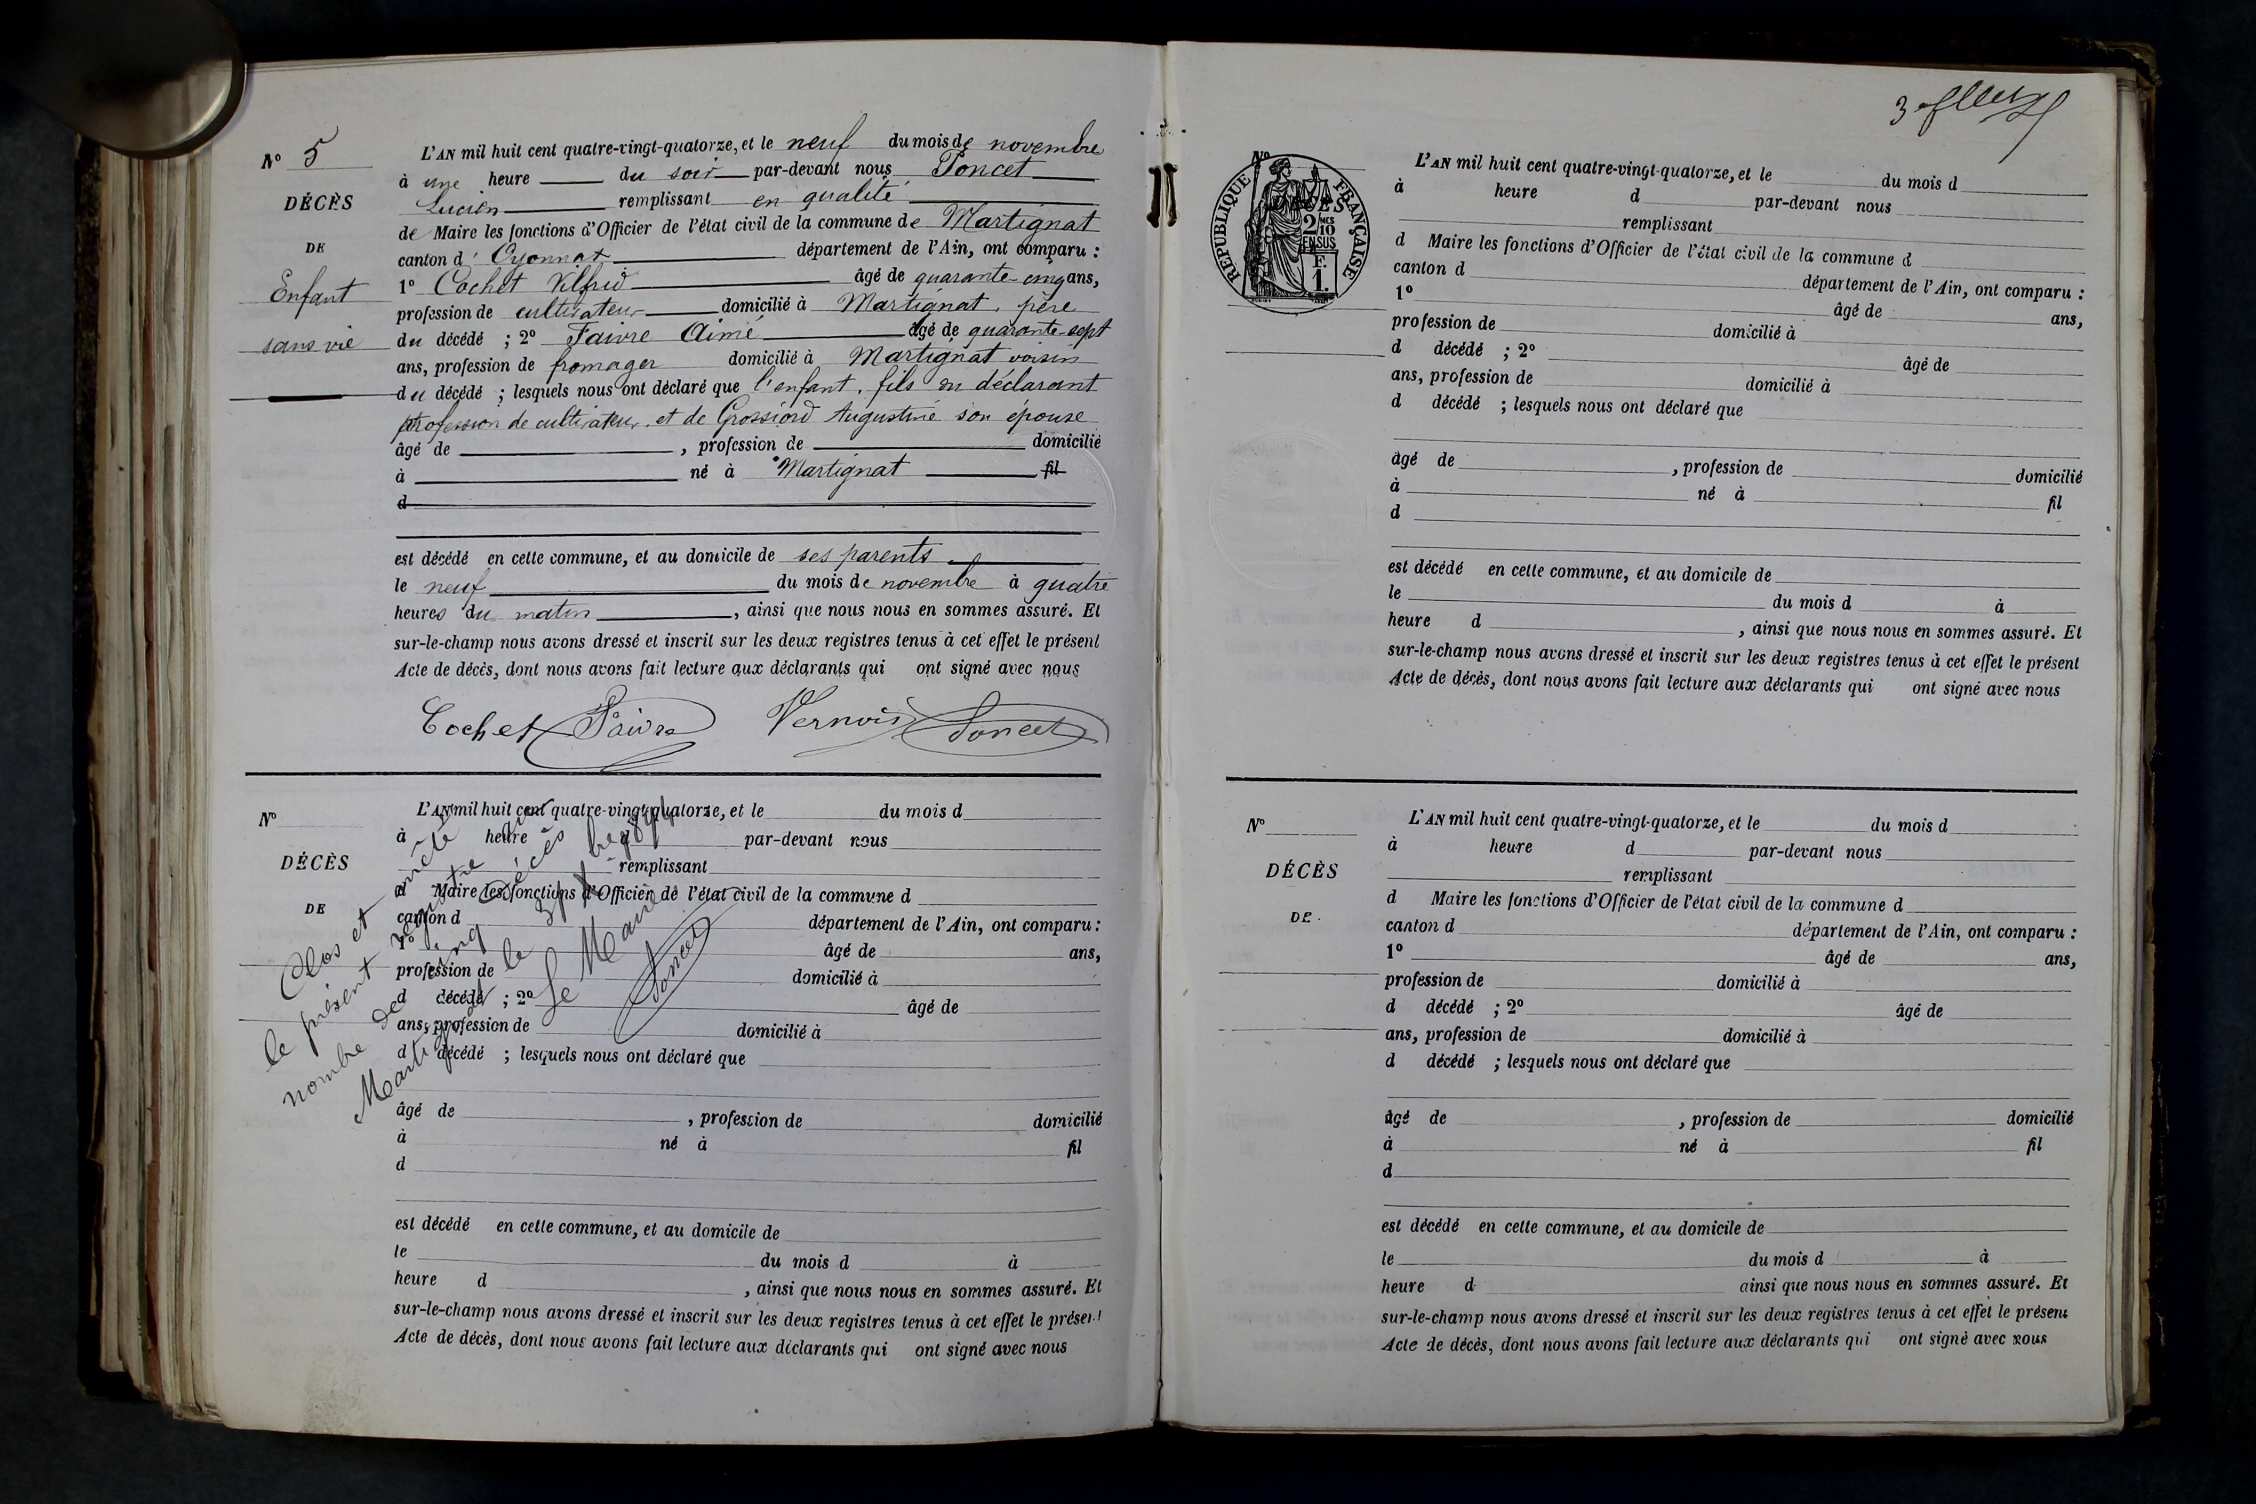 N° 5
DÉCÈS
DE
Enfant
sans vie
L'AN mil huit cent quatre-vingt-quatorze, et le neuf du mois de novembre
à une heure du soir par-devant nous Poncet
Lucien remplissant en qualité
de Maire les fonctions d'Officier de l'état civil de la commune de Martignat
canton d'Oyonnax département de l'Ain, ont comparu :
1° Cochet Vilfrid âgé de quarante-cinq ans,
profession de cultivateur domicilié à Martignat, père
du décédé ; 2° Faivre Aimé âgé de quarante-sept
ans, profession de fromager domicilié à Martignat voisin
du décédé ; lesquels nous ont déclaré que l'enfant, fils du déclarant
profession de cultivateur, et de Grossiord Augustine son épouse
âgé de , profession de domicilié
à né à Martignat fil
d
est décédé en cette commune, et au domicile de ses parents
le neuf du mois de novembre à quatre
heures du matin , ainsi que nous nous en sommes assuré. Et
sur-le-champ nous avons dressé et inscrit sur les deux registres tenus à cet effet le présent
Acte de décès, dont nous avons fait lecture aux déclarants qui ont signé avec nous
Cochet Faivre Vernois Poncet
N°
DÉCÈS
DE
L'AN mil huit cent quatre-vingt-quatorze, et le du mois d
à heure par-devant nous
remplissant
d Maire les fonctions d'Officier de l'état civil de la commune d
canton d département de l'Ain, ont comparu :
1° âgé de ans,
profession de domicilié à
d décédé ; 2° âgé de
ans, profession de domicilié à
d décédé ; lesquels nous ont déclaré que
âgé de , profession de domicilié
à né à fil
d
est décédé en cette commune, et au domicile de
le du mois d à
heure d , ainsi que nous nous en sommes assuré. Et
sur-le-champ nous avons dressé et inscrit sur les deux registres tenus à cet effet le présent
Acte de décès, dont nous avons fait lecture aux déclarants qui ont signé avec nous
Clos et arrêté
le présent registre
nombre de cinq décès
Martignat le
Le Maire
Poncet
3
N°
RÉPUBLIQUE FRANÇAISE
2/10 MES
EN SUS
F.
1.
L'AN mil huit cent quatre-vingt-quatorze, et le du mois d
à heure d par-devant nous
remplissant
d Maire les fonctions d'Officier de l'état civil de la commune d
canton d département de l'Ain, ont comparu :
1° âgé de ans,
profession de domicilié à
d décédé ; 2° âgé de
ans, profession de domicilié à
d décédé ; lesquels nous ont déclaré que
âgé de , profession de domicilié
à né à fil
d
est décédé en cette commune, et au domicile de
le du mois d à
heure d , ainsi que nous nous en sommes assuré. Et
sur-le-champ nous avons dressé et inscrit sur les deux registres tenus à cet effet le présent
Acte de décès, dont nous avons fait lecture aux déclarants qui ont signé avec nous
N°
DÉCÈS
DE
L'AN mil huit cent quatre-vingt-quatorze, et le du mois d
à heure d par-devant nous
remplissant
d Maire les fonctions d'Officier de l'état civil de la commune d
canton d département de l'Ain, ont comparu :
1° âgé de ans,
profession de domicilié à
d décédé ; 2° âgé de
ans, profession de domicilié à
d décédé ; lesquels nous ont déclaré que
âgé de , profession de domicilié
à né à fil
d
est décédé en cette commune, et au domicile de
le du mois d à
heure d ainsi que nous nous en sommes assuré. Et
sur-le-champ nous avons dressé et inscrit sur les deux registres tenus à cet effet le présent
Acte de décès, dont nous avons fait lecture aux déclarants qui ont signé avec nous